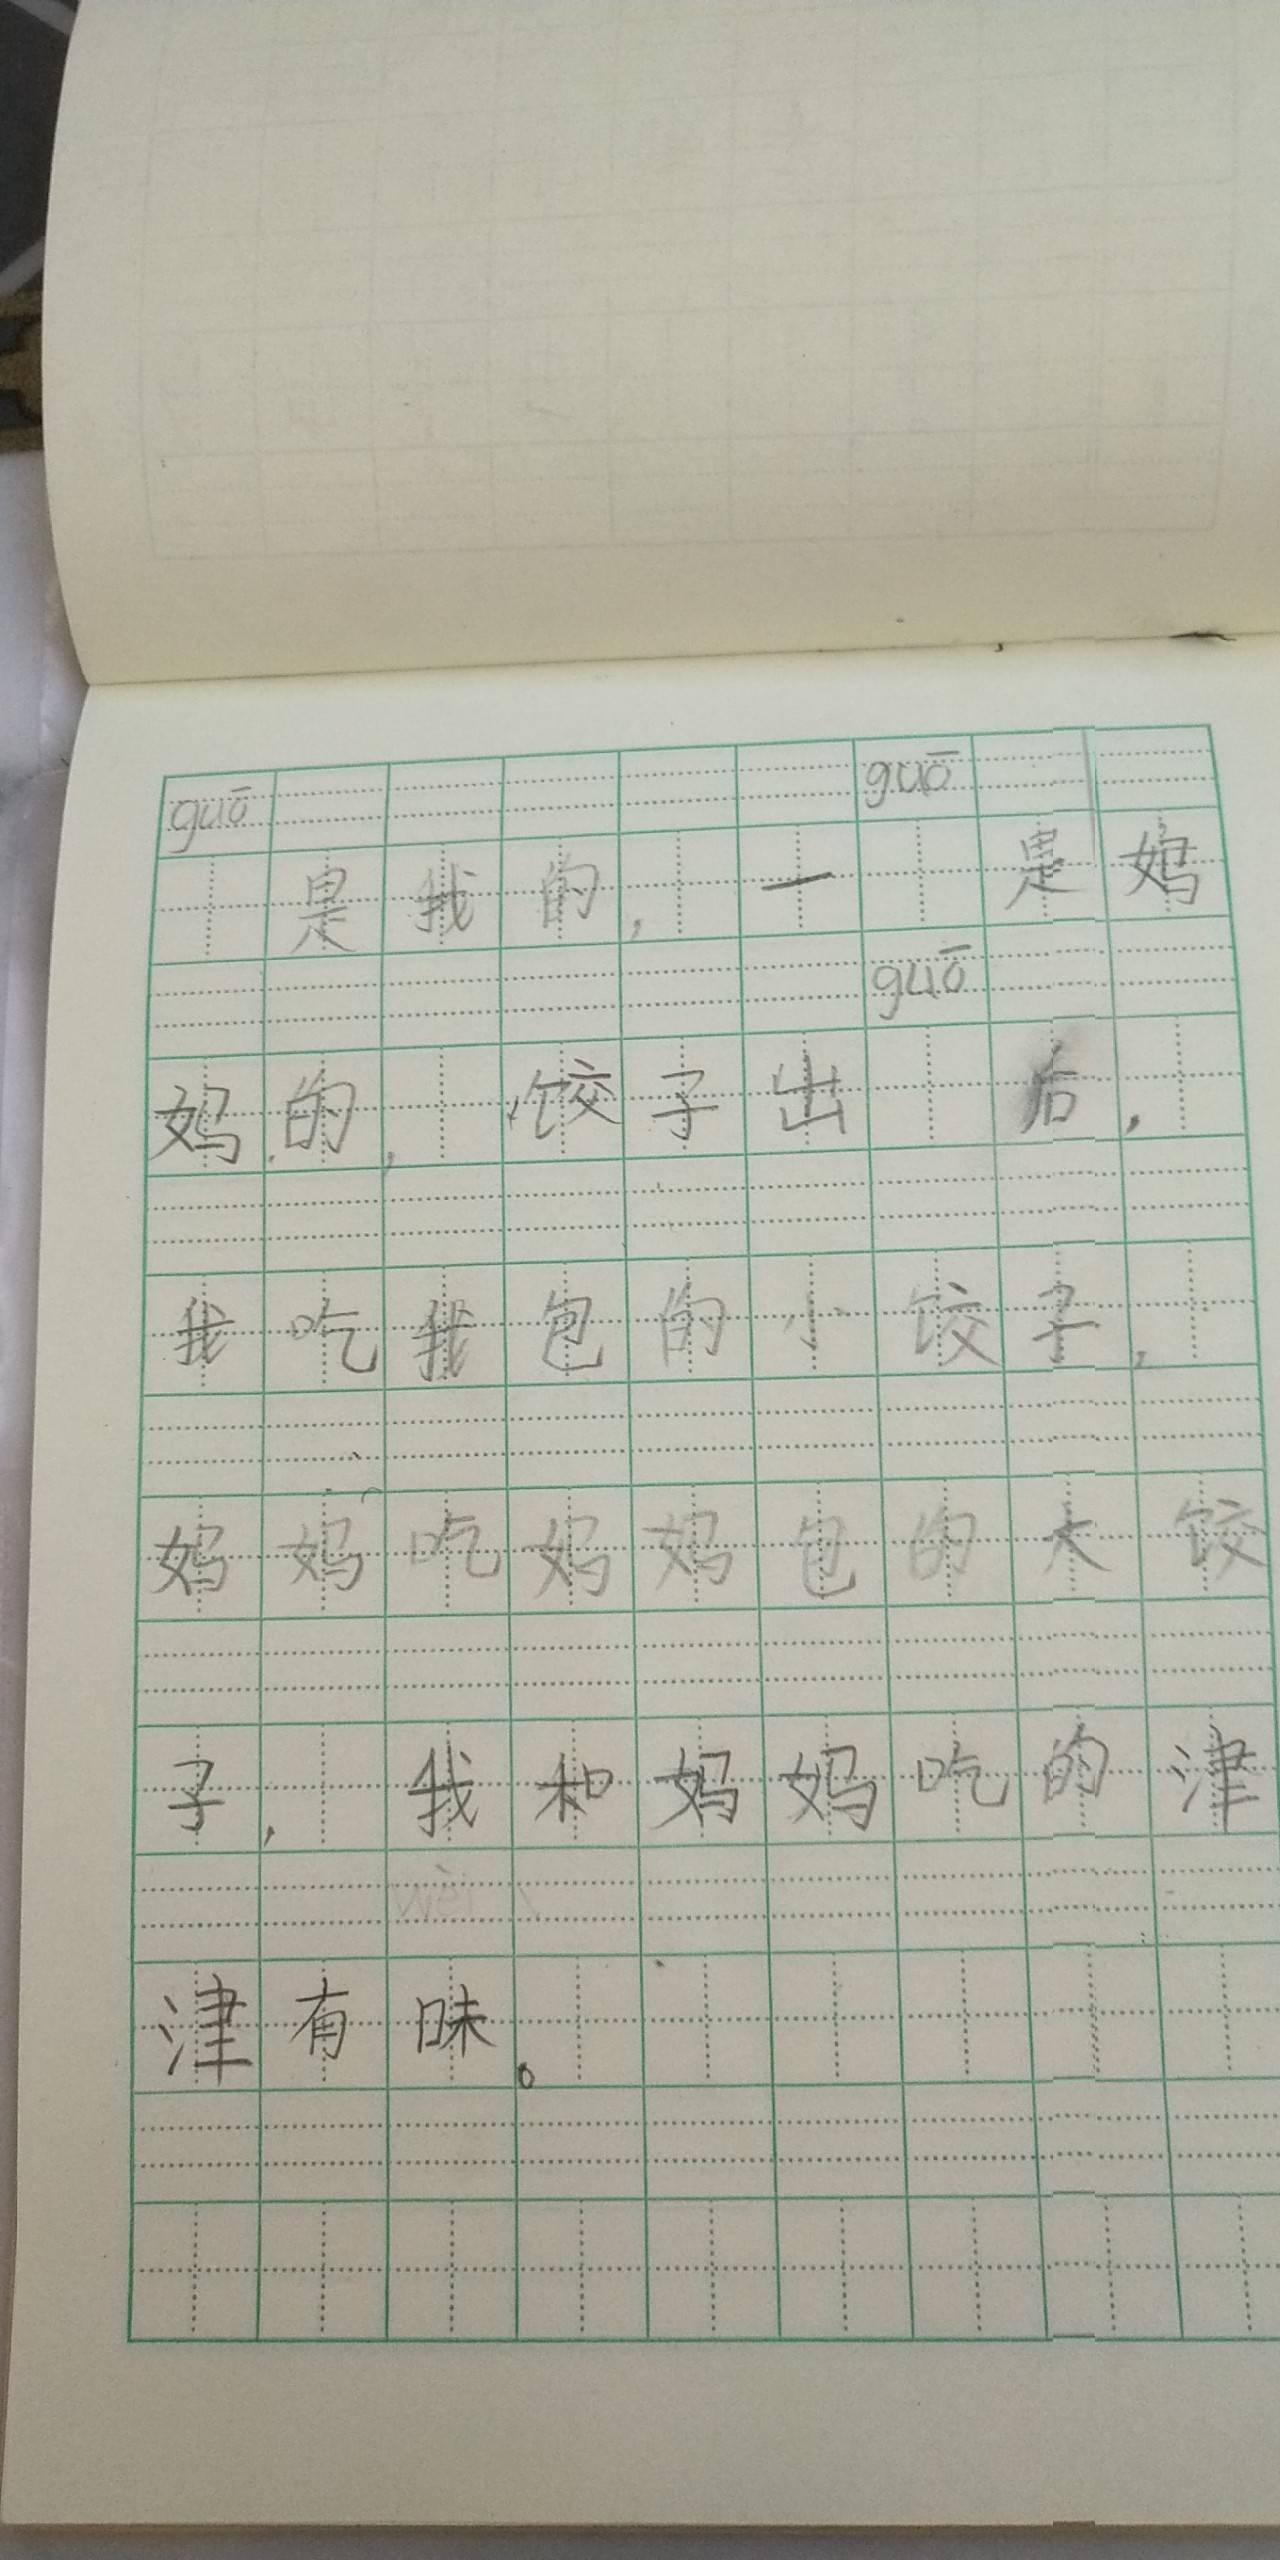 guō guō
是我的，一 是妈
guō
妈的，饺子出 后，
我吃我包的小饺子，
妈妈吃妈妈包的大饺
子，我和妈妈吃的津
wèi
津有味。